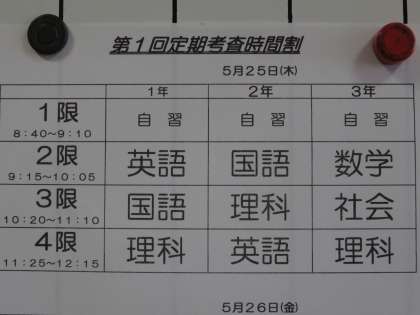 第1回定期考査時間割
5月25日(木)
1年 2年 3年
1限 自習 自習 自習
8:40～9:10
2限 英語 国語 数学
9:15～10:05
3限 国語 理科 社会
10:20～11:10
4限 理科 英語 理科
11:25～12:15
5月26日(金)